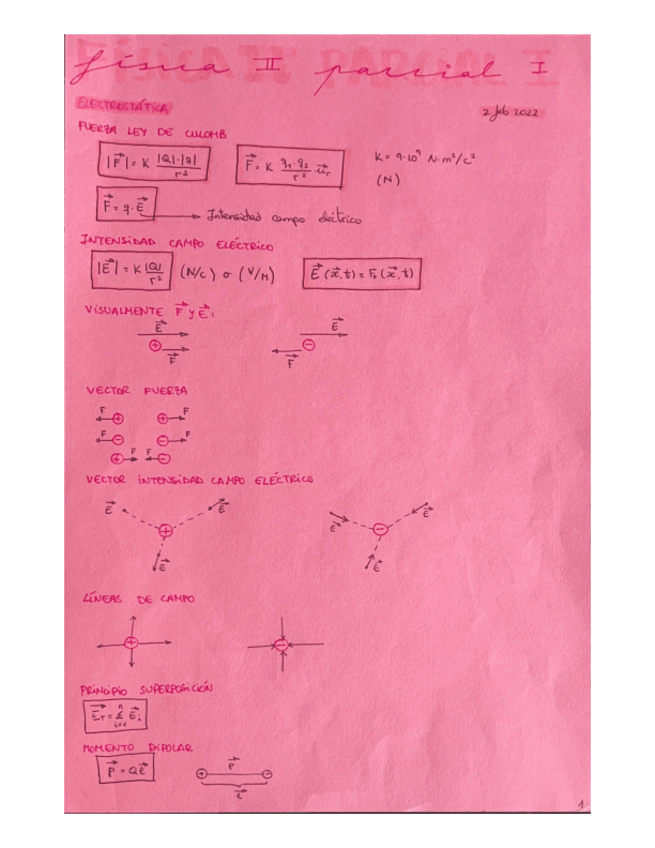 física II parcial I
ELECTROSTÁTICA
2 feb 2022
FUERZA LEY DE CULOMB
|F⃗| = K |Q|·|q| / r²
F⃗ = K q₁·q₂ / r² · u⃗r
K = 9·10⁹ N·m²/c²
(N)
F⃗ = q·E⃗ → Intensidad campo eléctrico
INTENSIDAD CAMPO ELÉCTRICO
|E⃗| = K |Q| / r² (N/C) o (V/M)
VISUALMENTE F⃗ y E⃗:
E⃗ E⃗
+ −
F⃗ F⃗
VECTOR FUERZA
F + + F
F − − F
+ F F −
VECTOR INTENSIDAD CAMPO ELÉCTRICO
E⃗ E⃗ E⃗ E⃗
+ −
E⃗ E⃗
LÍNEAS DE CAMPO
+ −
PRINCIPIO SUPERPOSICIÓN
E⃗T = Σ E⃗i
MOMENTO DIPOLAR
P⃗ = Q ℓ⃗
P⃗
+ −
ℓ⃗
1